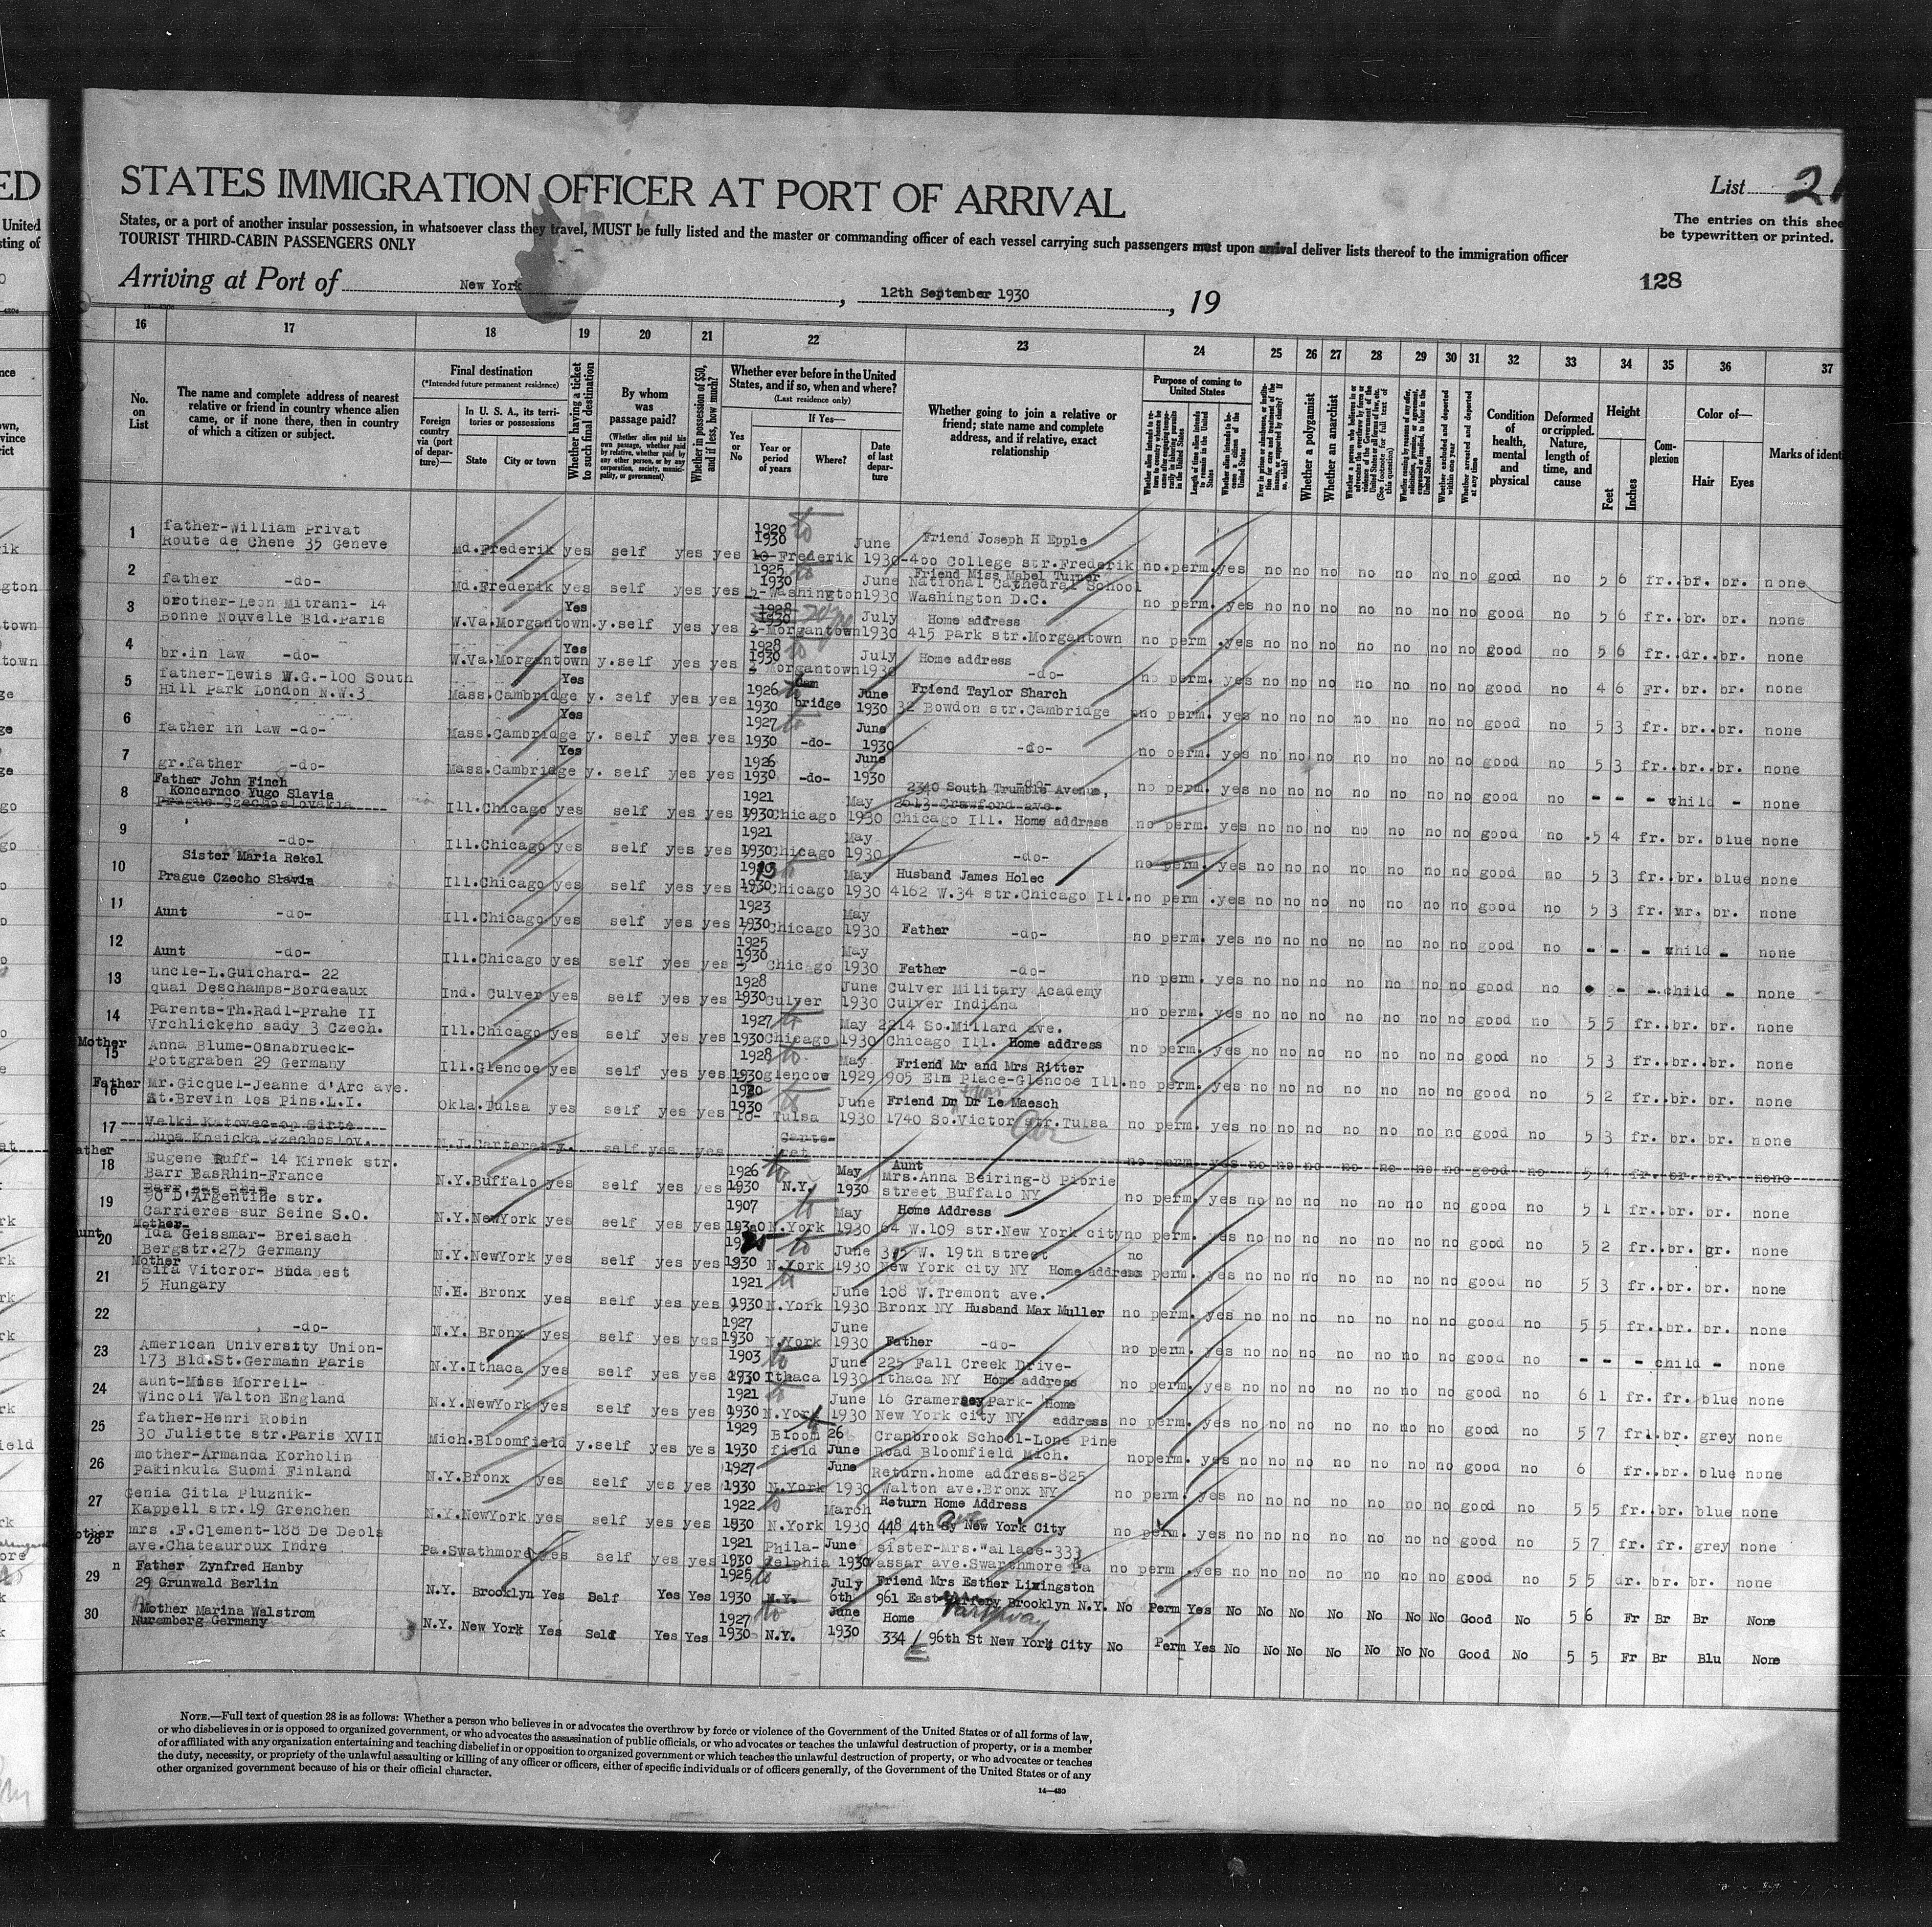 STATES IMMIGRATION OFFICER AT PORT OF ARRIVAL
List 21
States, or a port of another insular possession, in whatsoever class they travel, MUST be fully listed and the master or commanding officer of each vessel carrying such passengers must upon arrival deliver lists thereof to the immigration officer
TOURIST THIRD-CABIN PASSENGERS ONLY
The entries on this shee
be typewritten or printed.
Arriving at Port of New York, 12th September 1930, 19
128
16 17 18 19 20 21 22 23 24 25 26 27 28 29 30 31 32 33 34 35 36 37
No. on List
The name and complete address of nearest relative or friend in country whence alien came, or if none there, then in country of which a citizen or subject.
Final destination
(*Intended future permanent residence)
Foreign country via (port of departure)—
In U. S. A., its territories or possessions
State City or town
Whether having a ticket to such final destination
By whom was passage paid?
(Whether alien paid his own passage, whether paid by relative, whether paid by any other person, or by any corporation, society, municipality, or government)
Whether in possession of $50, and if less, how much?
Whether ever before in the United States, and if so, when and where?
(Last residence only)
Yes or No
If Yes—
Year or period of years
Where?
Date of last departure
Whether going to join a relative or friend; state name and complete address, and if relative, exact relationship
Purpose of coming to United States
Whether a polygamist
Whether an anarchist
Condition of health, mental and physical
Deformed or crippled. Nature, length of time, and cause
Height
Feet Inches
Complexion
Color of—
Hair Eyes
Marks of identi
1 father-William Privat
Route de Chene 35 Geneve
Md. Frederik yes self yes yes 1920 to 1930 10- Frederik June 1930
Friend Joseph H Epple
-400 College str.Frederik no perm. yes no no no no no no no good no 5 6 fr. br. br. none
2 father -do-
Md. Frederik yes self yes yes 1925 to 1930 5-Washington June 1930
Friend Miss Mabel Turner
National Cathedral School
Washington D.C. no perm. yes no no no no no no no good no 5 6 fr. br. br. none
3 brother-Leon Mitrani- 14
Bonne Nouvelle Bld.Paris
W.Va. Morgantown. Yes y. self yes yes 1928 1930 2-Morgantown July 1930
Home address
415 Park str.Morgantown no perm. yes no no no no no no no good no 5 6 fr. dr. br. none
4 br.in law -do-
W.Va. Morgantown Yes y. self yes yes 1928 to 1930 2 Morgantown July 1930
Home address
-do- no perm. yes no no no no no no no good no 4 6 Fr. br. br. none
5 father-Lewis W.G.-100 South
Hill Park London N.W.3
Mass. Cambridge Yes y. self yes yes 1926 1930 Cam bridge June 1930
Friend Taylor Sharch
32 Bowdon str.Cambridge no perm. yes no no no no no no no good no 5 3 fr. br. br. none
6 father in law -do-
Mass. Cambridge Yes y. self yes yes 1927 to 1930 -do- June 1930
-do- no perm. yes no no no no no no no good no 5 3 fr. br. br. none
7 gr.father -do-
Mass. Cambridge Yes y. self yes yes 1926 1930 -do- June 1930
-do- no perm. yes no no no no no no no good no - - - child - none
8 Father John Finch
Koncarnco Yugo Slavia
Prague Czechoslovakia
Ill. Chicago yes self yes yes 1921 1930 Chicago May 1930
2340 South Trumble Avenue,
2613 Crawford ave.
Chicago Ill. Home address no perm. yes no no no no no no no good no 5 4 fr. br. blue none
9 -do-
Ill. Chicago yes self yes yes 1921 1930 Chicago May 1930
-do- no perm. yes no no no no no no no good no 5 3 fr. br. blue none
10 Sister Maria Rekel
Prague Czecho Slavia
Ill. Chicago yes self yes yes 1930 Chicago May 1930
Husband James Holec
4162 W.34 str.Chicago Ill. no perm. yes no no no no no no no good no 5 3 fr. br. none
11 Aunt -do-
Ill. Chicago yes self yes yes 1923 1930 Chicago May 1930
Father -do- no perm. yes no no no no no no no good no - - - child - none
12 Aunt -do-
Ill. Chicago yes self yes yes 1925 1930 5 Chicago May 1930
Father -do- no perm. yes no no no no no no no good no - - child - none
13 uncle-L.Guichard- 22
quai Deschamps-Bordeaux
Ind. Culver yes self yes yes 1928 1930 Culver June 1930
Culver Military Academy
Culver Indiana no perm. yes no no no no no no no good no 5 5 fr. br. br. none
14 Parents-Th.Radl-Prahe II
Vrchlickeho sady 3 Czech.
Ill. Chicago yes self yes yes 1927 to 1930 Chicago May 1930
2214 So.Millard ave.
Chicago Ill. Home address no perm. yes no no no no no no no good no 5 3 fr. br. br. none
15 Mother
Anna Blume-Osnabrueck-
Pottgraben 29 Germany
Ill. Glencoe yes self yes yes 1928 to 1930 glencoe May 1929
Friend Mr and Mrs Ritter
905 Elm Place-Glencoe Ill. no perm. yes no no no no no no no good no 5 2 fr. br. br. none
16 Father Mr.Gicquel-Jeanne d'Arc ave.
St.Brevin les Pins.L.I.
Okla. Tulsa yes self yes yes 1930 10- Tulsa June 1930
Friend Dr Dr Le Maesch
1740 So.Victor str.Tulsa Ave no perm. yes no no no no no no no good no 5 3 fr. br. br. none
17 Valki Katovec-op Sirte
Zupa Kosicka Czechoslov.
N.J. Carteret y. self yes yes Carte- ret
no perm. yes no no no no no no no good no 5 4 fr. br. br. none
18 ather
Eugene Ruff- 14 Kirnek str.
Barr BasRhin-France
N.Y. Buffalo yes self yes yes 1926 to 1930 N.Y. May 1930
Aunt
Mrs.Anna Beiring-8 Plorie
street Buffalo NY no perm. yes no no no no no no no good no 5 1 fr. br. br. none
19 Barr Bas Rhin
90 D'Argentine str.
Carrieres sur Seine S.O.
N.Y. NewYork yes self yes yes 1907 to 1930 N.York May 1930
Home Address
64 W.109 str.New York city no perm. yes no no no no no no no good no 5 2 fr. br. gr. none
20 unt Mother-
Ida Geissmar- Breisach
Bergstr.275 Germany
N.Y. NewYork yes self yes yes to 1930 N.York June 1930
315 W. 19th street
New York city NY Home address no perm. yes no no no no no no no good no 5 3 fr. br. br. none
21 Mother
Sifa Vitoror- Budapest
5 Hungary
N.H. Bronx yes self yes yes 1921 to 1930 N.York June 1930
108 W.Tremont ave.
Bronx NY Husband Max Muller no perm. yes no no no no no no no good no 5 5 fr. br. br. none
22 -do-
N.Y. Bronx yes self yes yes 1927 1930 N.York June 1930
Father -do- no perm. yes no no no no no no no good no - - - child - none
23 American University Union-
173 Bld.St.Germann Paris
N.Y. Ithaca yes self yes yes 1903 to 1930 Ithaca June 1930
225 Fall Creek Drive-
Ithaca NY Home address no perm. yes no no no no no no no good no 6 1 fr. fr. blue none
24 aunt-Miss Morrell-
Wincoli Walton England
N.Y. NewYork yes self yes yes 1921 to 1930 N.York June 1930
16 Gramersey Park- Home
New York city NY address no perm. yes no no no no no no no good no 5 7 fr. br. grey none
25 father-Henri Robin
30 Juliette str.Paris XVII
Mich. Bloomfield y. self yes yes 1929 1930 Bloom field 26 June
Cranbrook School-Lone Pine
Road Bloomfield Mich. no perm. yes no no no no no no no good no 6 fr. br. blue none
26 mother-Armanda Korholin
Pakinkula Suomi Finland
N.Y. Bronx yes self yes yes 1927 1930 N.York June 1930
Return.home address-825
Walton ave.Bronx NY no perm. yes no no no no no no no good no 5 5 fr. br. blue none
27 Genia Gitla Pluznik-
Kappell str.19 Grenchen
N.Y. NewYork yes self yes yes 1922 to 1930 N.York March 1930
Return Home Address
448 4th Ave New York City no perm. yes no no no no no no no good no 5 7 fr. fr. grey none
28 other
mrs .F.Clement-188 De Deols
ave.Chateauroux Indre
Pa. Swathmore yes self yes yes 1921 1930 Phila- delphia June 1930
sister-Mrs.Wallace-333
Vassar ave.Swarthmore Pa no perm. yes no no no no no no no good no 5 5 dr. br. br. none
29 n Father Zynfred Hanby
29 Grunwald Berlin
N.Y. Brooklyn Yes Self Yes Yes 1926 to 1930 N.Y. July 6th
Friend Mrs Esther Livingston
961 East Jaffery Brooklyn N.Y. Parkway No Perm Yes No No No No No No No Good No 5 6 Fr Br Br None
30 Mother Marina Walstrom
Nuremberg Germany
N.Y. New York Yes Self Yes Yes 1927 to 1930 N.Y. June 1930
Home
334 E 96th St New York City No Perm Yes No No No No No No No Good No 5 5 Fr Br Blu None
NOTE.—Full text of question 28 is as follows: Whether a person who believes in or advocates the overthrow by force or violence of the Government of the United States or of all forms of law,
or who disbelieves in or is opposed to organized government, or who advocates the assassination of public officials, or who advocates or teaches the unlawful destruction of property, or is a member
of or affiliated with any organization entertaining and teaching disbelief in or opposition to organized government or which teaches the unlawful destruction of property, or who advocates or teaches
the duty, necessity, or propriety of the unlawful assaulting or killing of any officer or officers, either of specific individuals or of officers generally, of the Government of the United States or of any
other organized government because of his or their official character.
14—430